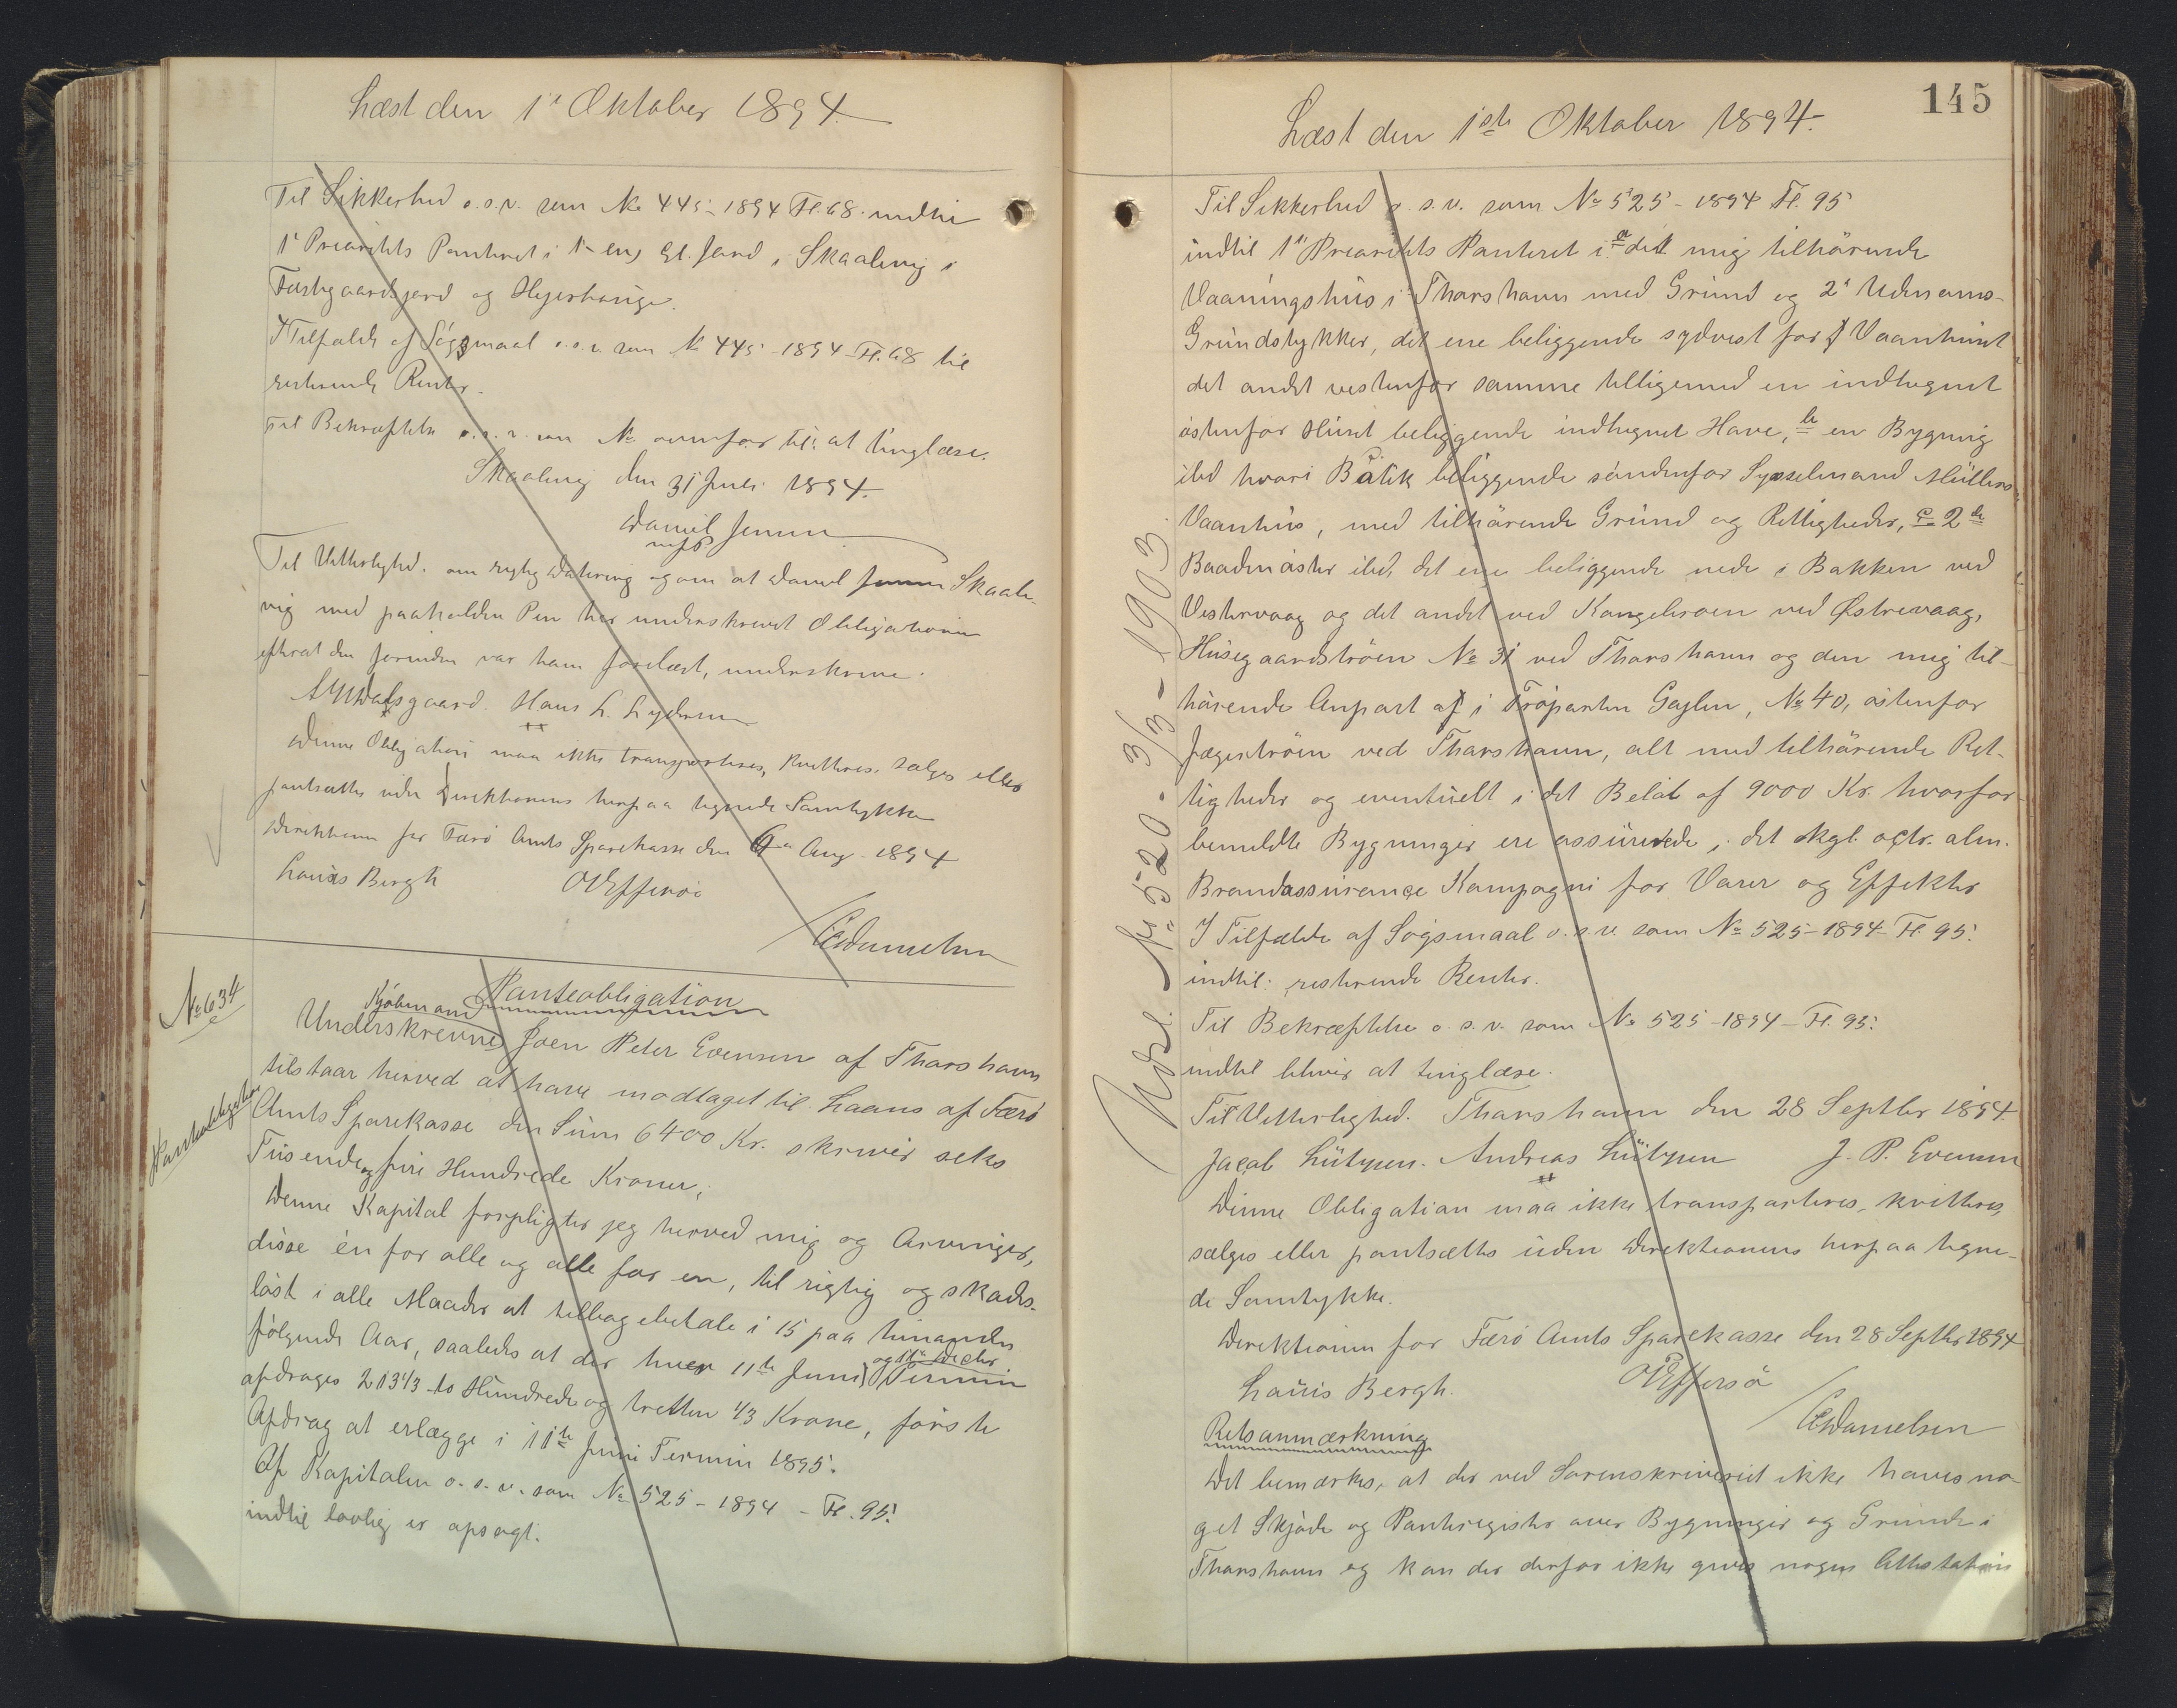 Læst den 1ᵉ Oktober 1894.
Til Sikkerhed o.s.v. som No 445-1894 Fl. 68. indtil
1ᵉ Prioritets Panteret i 1 Gl. Jord i Skaalevig i
og
I Tilfælde af Søgsmaal o.s.v. som No 445-1894-Fl. 68 til
resterende Renter.
Til Bekræftelse o.s.v. som No ovenfor til: at tinglæse.
Skaalevig den 31 Juli 1894.
Daniel Jensen
m f P
Til Vitterlighed. om rigtig Datering og om at Daniel Jensen Skaale-
vig med paaholden Pen har underskrevet Obligationen
efterat den forinden var ham forelæst, underskrive.
Dalsgaard. Hans L. Lydersen
Denne Obligation maa ikke transporteres, kvitteres, sælges eller
pantsættes uden Direktionens herpaa tegnede Samtykke
Direktionen for Færø Amts Sparekasse den Aug. 1894
Louis Bergh OEffersøe
CDanielsen
No 634
Panteobligation
Kjøbmand
Underskrevne Joen Peter Evensen af Thorshavn
tilstaar herved at have modtaget til Laans af Færø
Panteobligation
Amts Sparekasse den Sum 6400 Kr. skriver seks
Tusende og fire Hundrede Kroner,
Denne Kapital forpligter jeg herved mig og Arvinger,
disse èn for alle og alle for en, til rigtig og skades-
løst i alle Maader at tilbagebetale i 15 paa hinanden
følgende Aar, saaledes at der hver 11te Juni og 11te Decbr. Termin
afdrages 213⅓ to Hundrede og tretten 1/3 Krone, første
Afdrag at erlægge i 11te Juni Termin 1895.
Af Kapitalen o.s.v. som No 525-1894-Fl. 95.
indtil lovlig er opsagt.
145
Læst den 1ste Oktober 1894.
Til Sikkerhed o.s.v. som No 525-1894 Fl. 95
indtil 1ᵉ Prioritets Panteret i a det mig tilhørende
Vaaningshus i Thorshavn med Grund og 2ᵈ Udenoms-
Grundstykker, det ene beliggende sydvest for Vaanhuset
det andet vestenfor samme tilligemed en indhegnet
østenfor Huset beliggende indhegnet Have, b en Bygning
ibd hvori Butik beliggende søndenfor Sysselmand Müllers
Vaanhus, med tilhørende Grund og Rettigheder, c 2de
Baadnøster ibd, det ene beliggende nede i Bakken ved
Vestervaag og det andet ved Kongebroen ved Østrevaag,
Husegaardstrøen No 31 ved Thorshavn og den mig til-
hørende Anpart af i Trøparten Gejlen, No 40, østenfor
Jægertrøen ved Thorshavn, alt med tilhørende Ret-
tigheder og eventuelt i det Beløb af 9000 Kr. hvorfor
bemeldte Bygninger ere assurerede i det kgl. octr. alm.
Brandassurance Kompagni for Varer og Effekter
I Tilfælde af Søgsmaal o.s.v. som No 525-1894-Fl. 95.
indtil: resterende Renter.
Til Bekræftelse o.s.v. som No 525-1894-Fl. 95.
indtil bliver at tinglæse.
Til Vitterlighed. Thorshavn den 28 Septbr 1894.
Jacob Lützen. Andreas Lützen J. P. Evensen
Denne Obligation maa ikke transporteres, kvitteres,
sælges eller pantsættes uden Direktionens herpaa tegne-
de Samtykke.
Direktionen for Færø Amts Sparekasse den 28 Septbr 1894
Louis Bergh. OEffersø
CDanielsen
Retsanmærkning
Det bemærkes, at der ved Sorenskriveriet ikke haves no-
get Skjøde og Panteregister over Bygninger og Grunde i
Thorshavn og kan der derfor ikke gives nogen Attestation
Udsl. No 520. 3/3-1903.